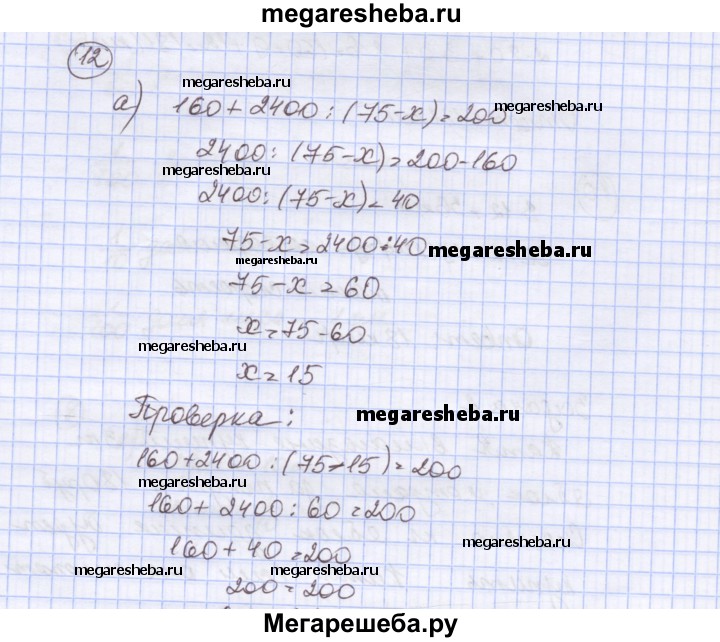 megaresheba.ru
12
megaresheba.ru
а) 160 + 2400 : (75-x) = 200
megaresheba.ru
2400 : (75-x) = 200-160
megaresheba.ru
2400 : (75-x) = 40
75-x = 2400:40
megaresheba.ru
megaresheba.ru
75-x = 60
x = 75-60
megaresheba.ru
x = 15
Проверка:
megaresheba.ru
160+2400 : (75-15) = 200
megaresheba.ru
160+ 2400 : 60 = 200
160 + 40 = 200
megaresheba.ru
megaresheba.ru
megaresheba.ru
200 = 200
Мегарешеба.ру